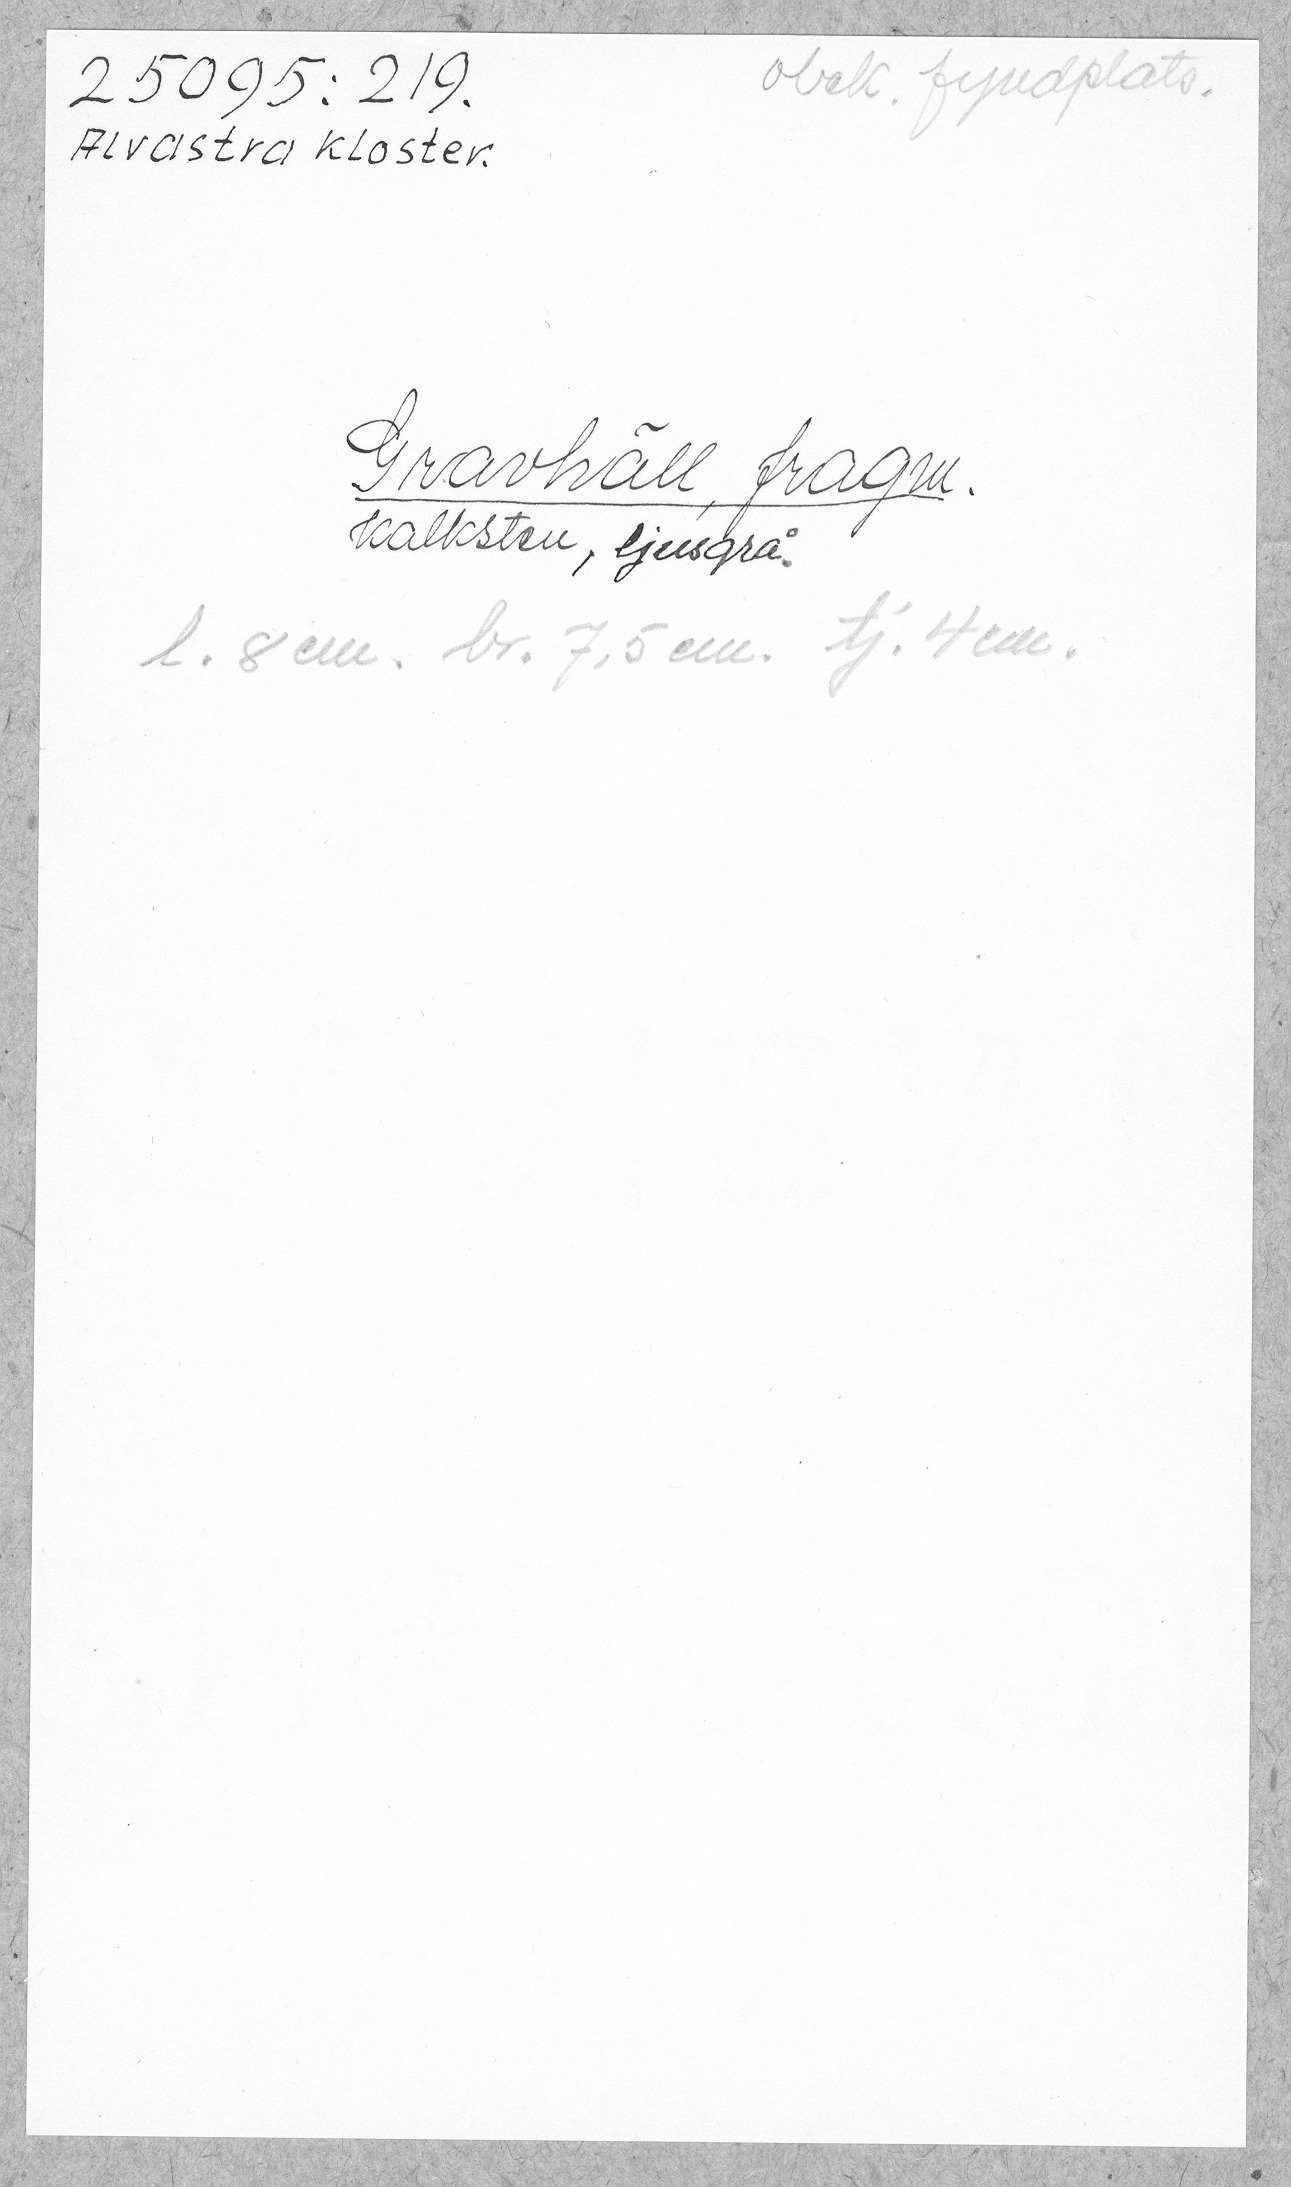 25095: 219.
obek. fyndplats.
Alvastra kloster.
Gravhäll, fragm.
kalksten, ljusgrå.
l. 8 cm. br. 7,5 cm. tj. 4 cm.